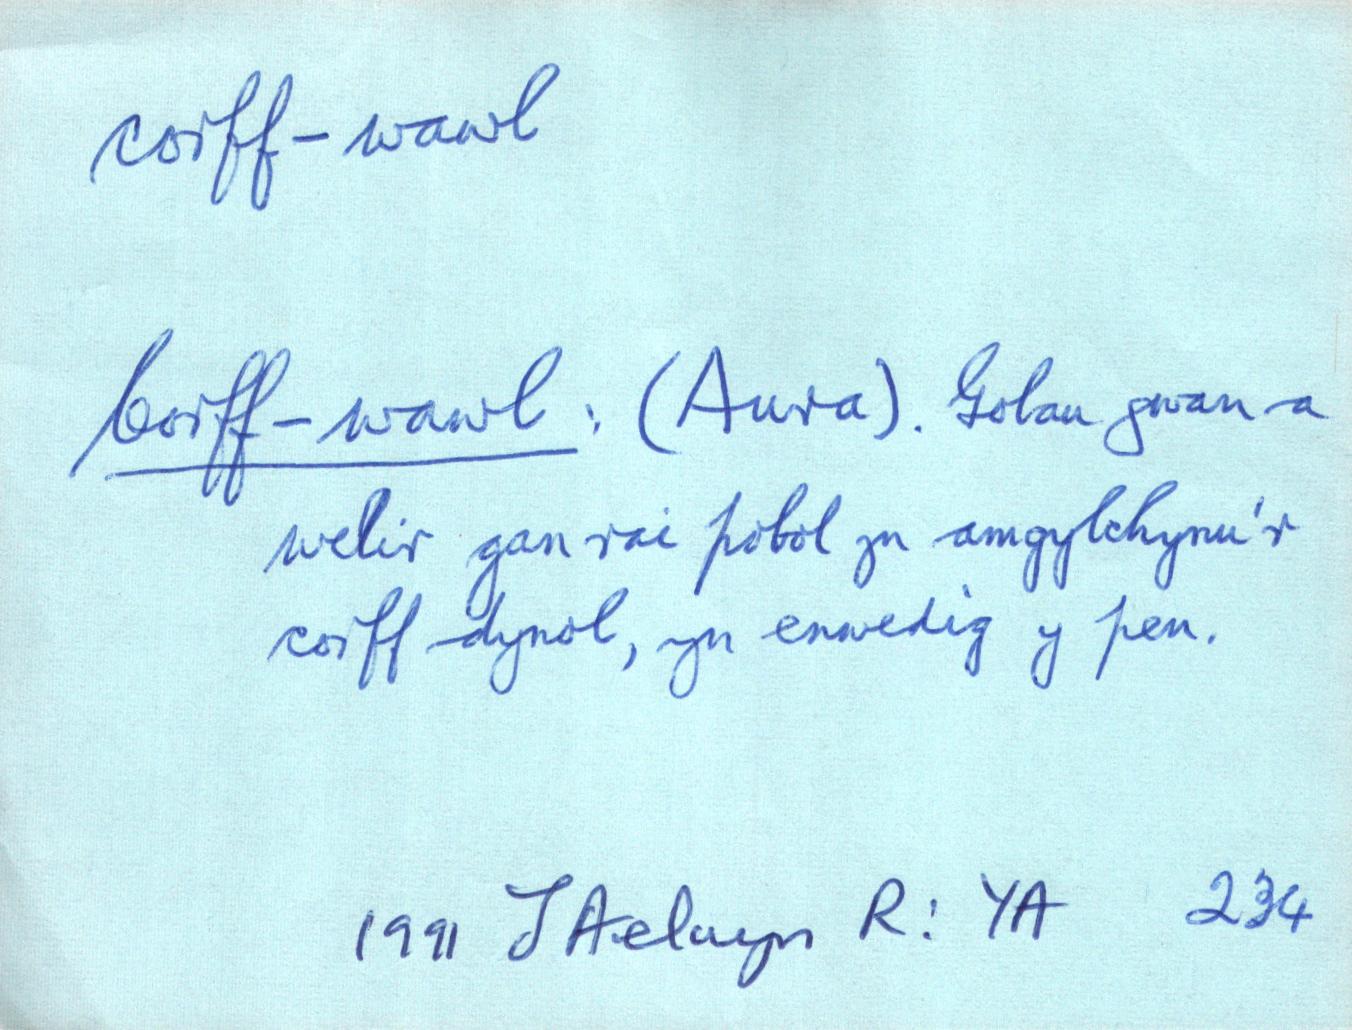 corff-wawl
Corff-wawl: (Aura). Golau gwan a
welir gan rai pobol yn amgylchynu'r
corff dynol, yn enwedig y pen.
1991 J Aelwyn R: YA 234